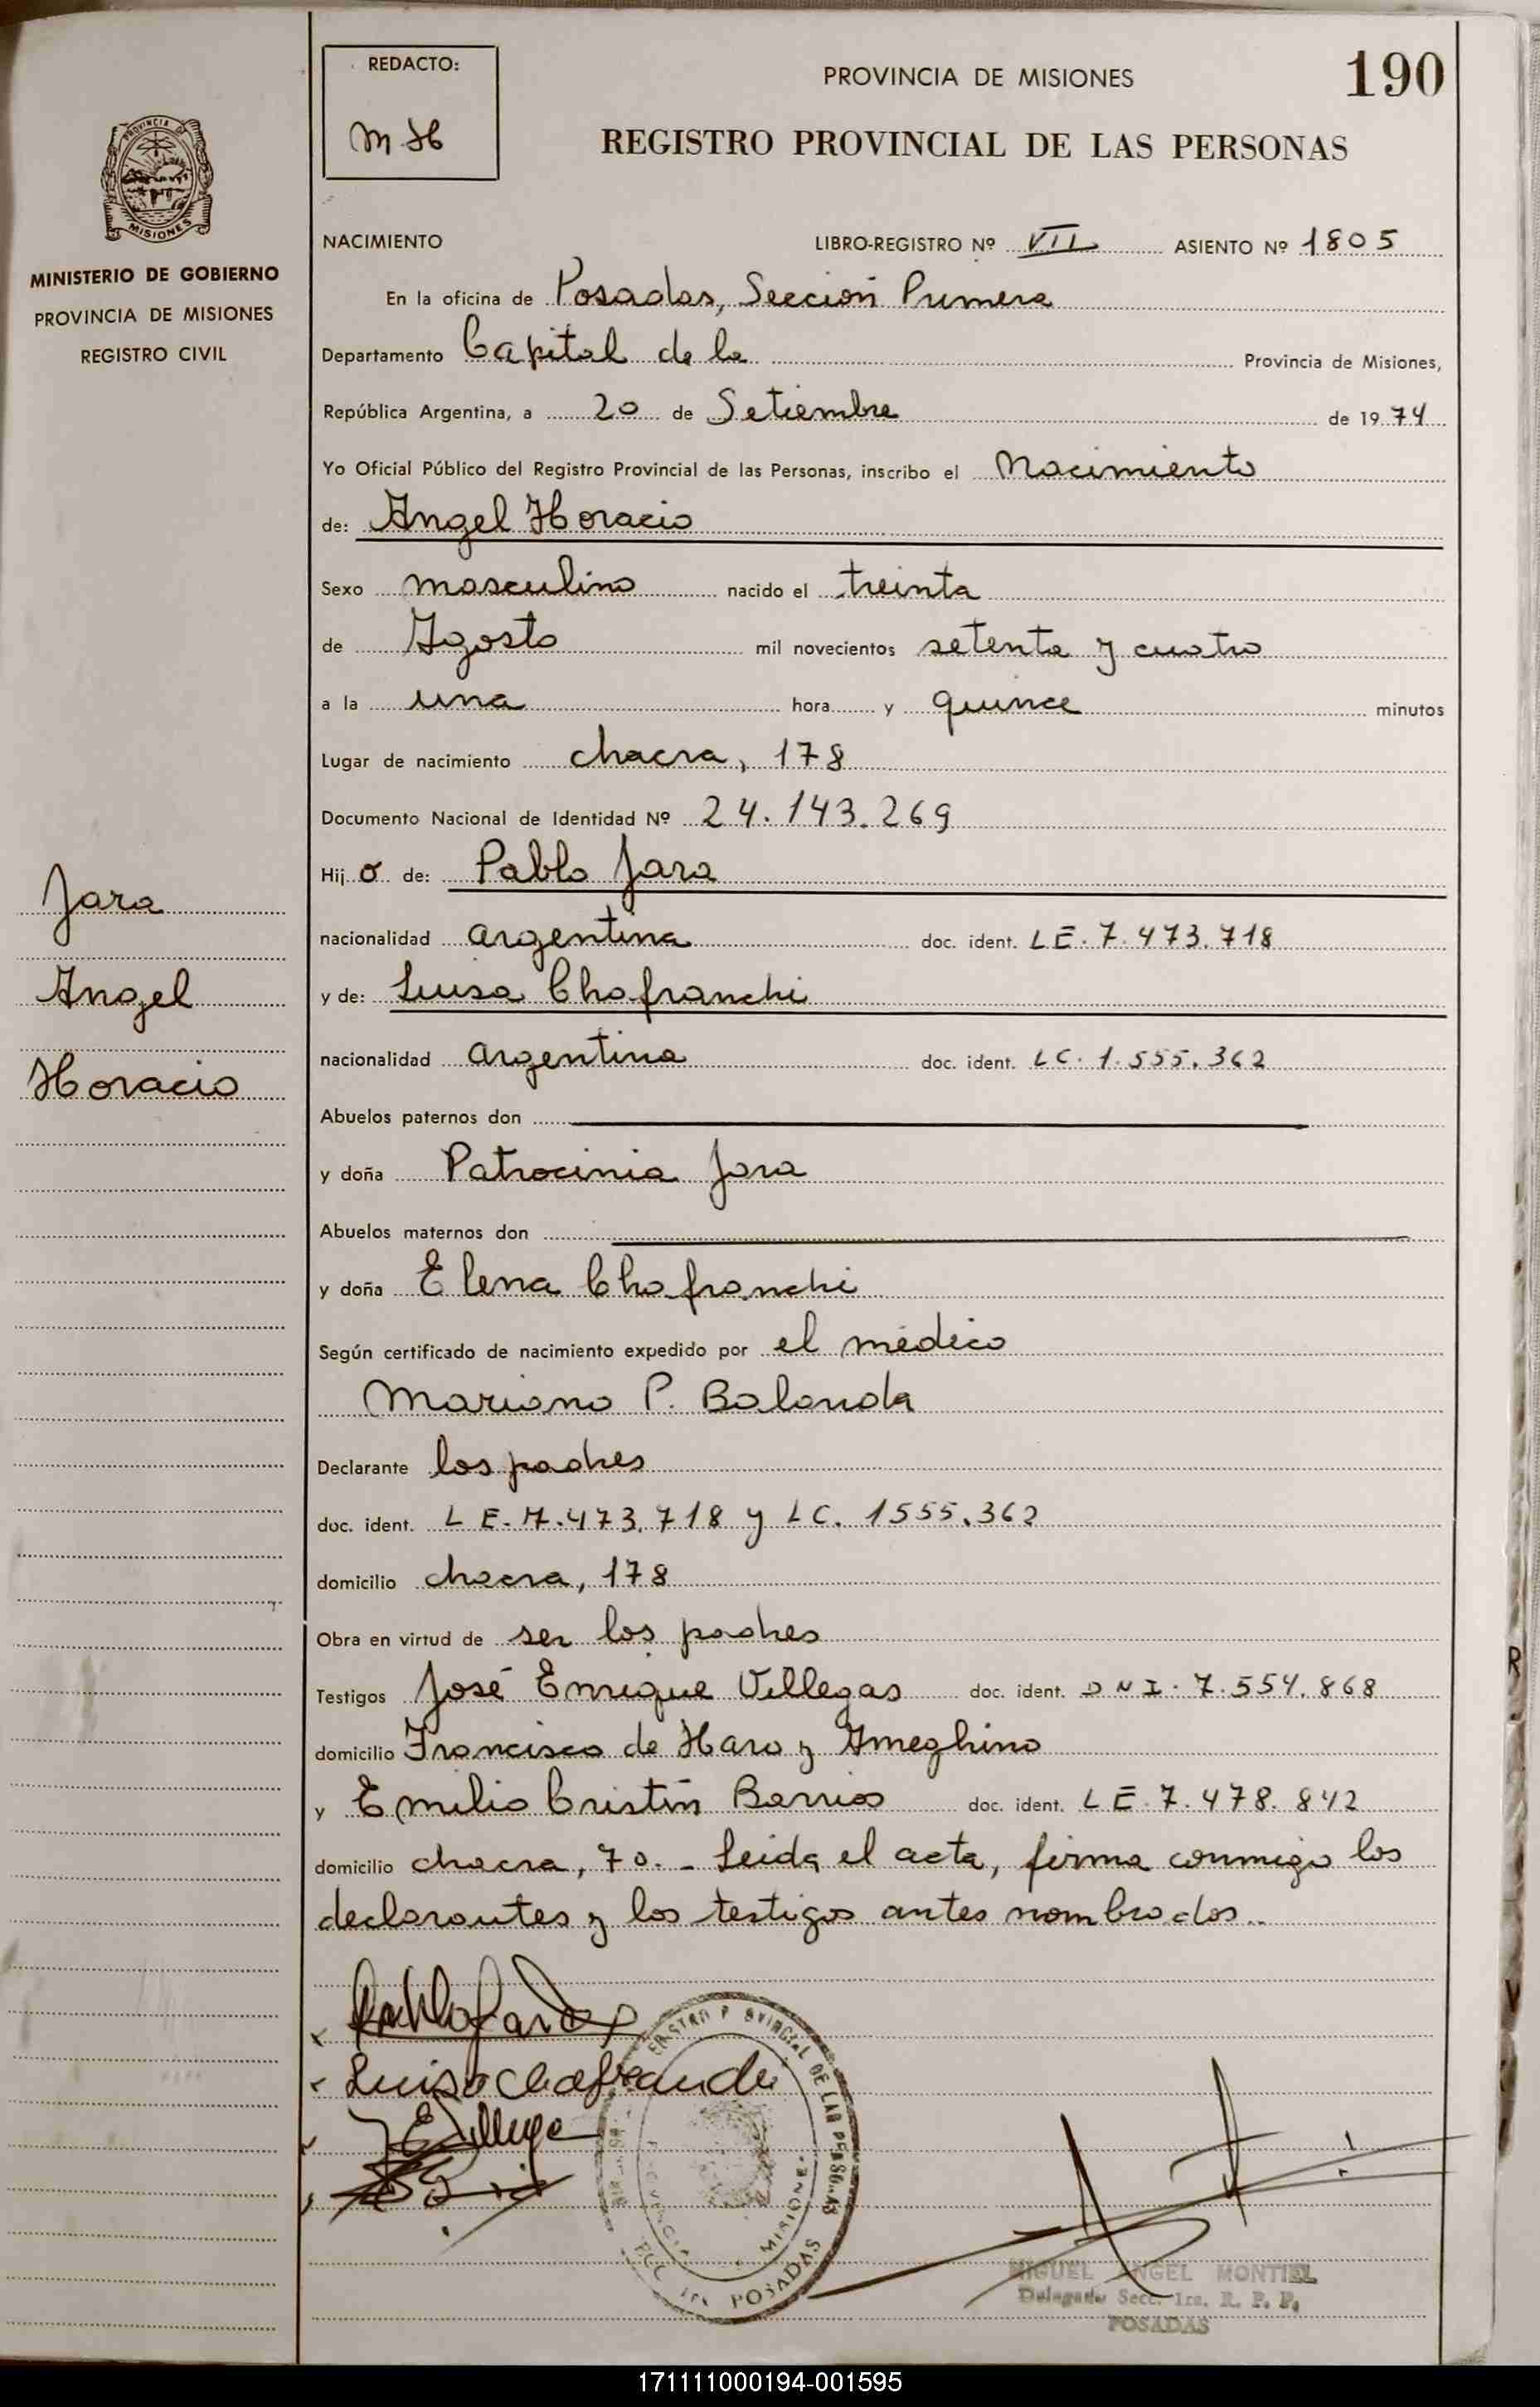 REDACTO:
M H
PROVINCIA DE MISIONES
190
REGISTRO PROVINCIAL DE LAS PERSONAS
PROVINCIA DE
MISIONES
MINISTERIO DE GOBIERNO
PROVINCIA DE MISIONES
REGISTRO CIVIL
NACIMIENTO LIBRO-REGISTRO Nº VII ASIENTO Nº 1805
En la oficina de Posadas, Sección Primera
Departamento Capital de la Provincia de Misiones,
República Argentina, a 20 de Setiembre de 1974
Yo Oficial Público del Registro Provincial de las Personas, inscribo el Nacimiento
de: Angel Horacio
Sexo masculino nacido el treinta
de Agosto mil novecientos setenta y cuatro
a la una hora y quince minutos
Lugar de nacimiento chacra, 178
Documento Nacional de Identidad Nº 24.143.269
Hijo de: Pablo Jara
Jara
nacionalidad argentina doc. ident. LE. 7.473.718
Angel
y de: Luisa Chafranchi
Horacio
nacionalidad argentina doc. ident. LC. 1.555.362
Abuelos paternos don
y doña Patrocinia Jara
Abuelos maternos don
y doña Elena Chafranchi
Según certificado de nacimiento expedido por el médico
Mariano P. Balanda
Declarante los padres
doc. ident. LE. 7.473.718 y LC. 1555.362
domicilio chacra, 178
Obra en virtud de ser los padres
Testigos José Enrique Villegas doc. ident. DNI. 7.554.868
domicilio Francisco de Haro y Ameghino
y Emilio Cristin Barrios doc. ident. LE. 7.478.842
domicilio chacra, 70.- Leida el acta, firma conmigo los
declarantes y los testigos antes nombrados..
Pablo Jara
Luisa Chafranchi
PROVINCIA MISIONES
POSADAS
MIGUEL ANGEL MONTIEL
Delegado Secc. 1ra. R. P. P.
POSADAS
171111000194-001595